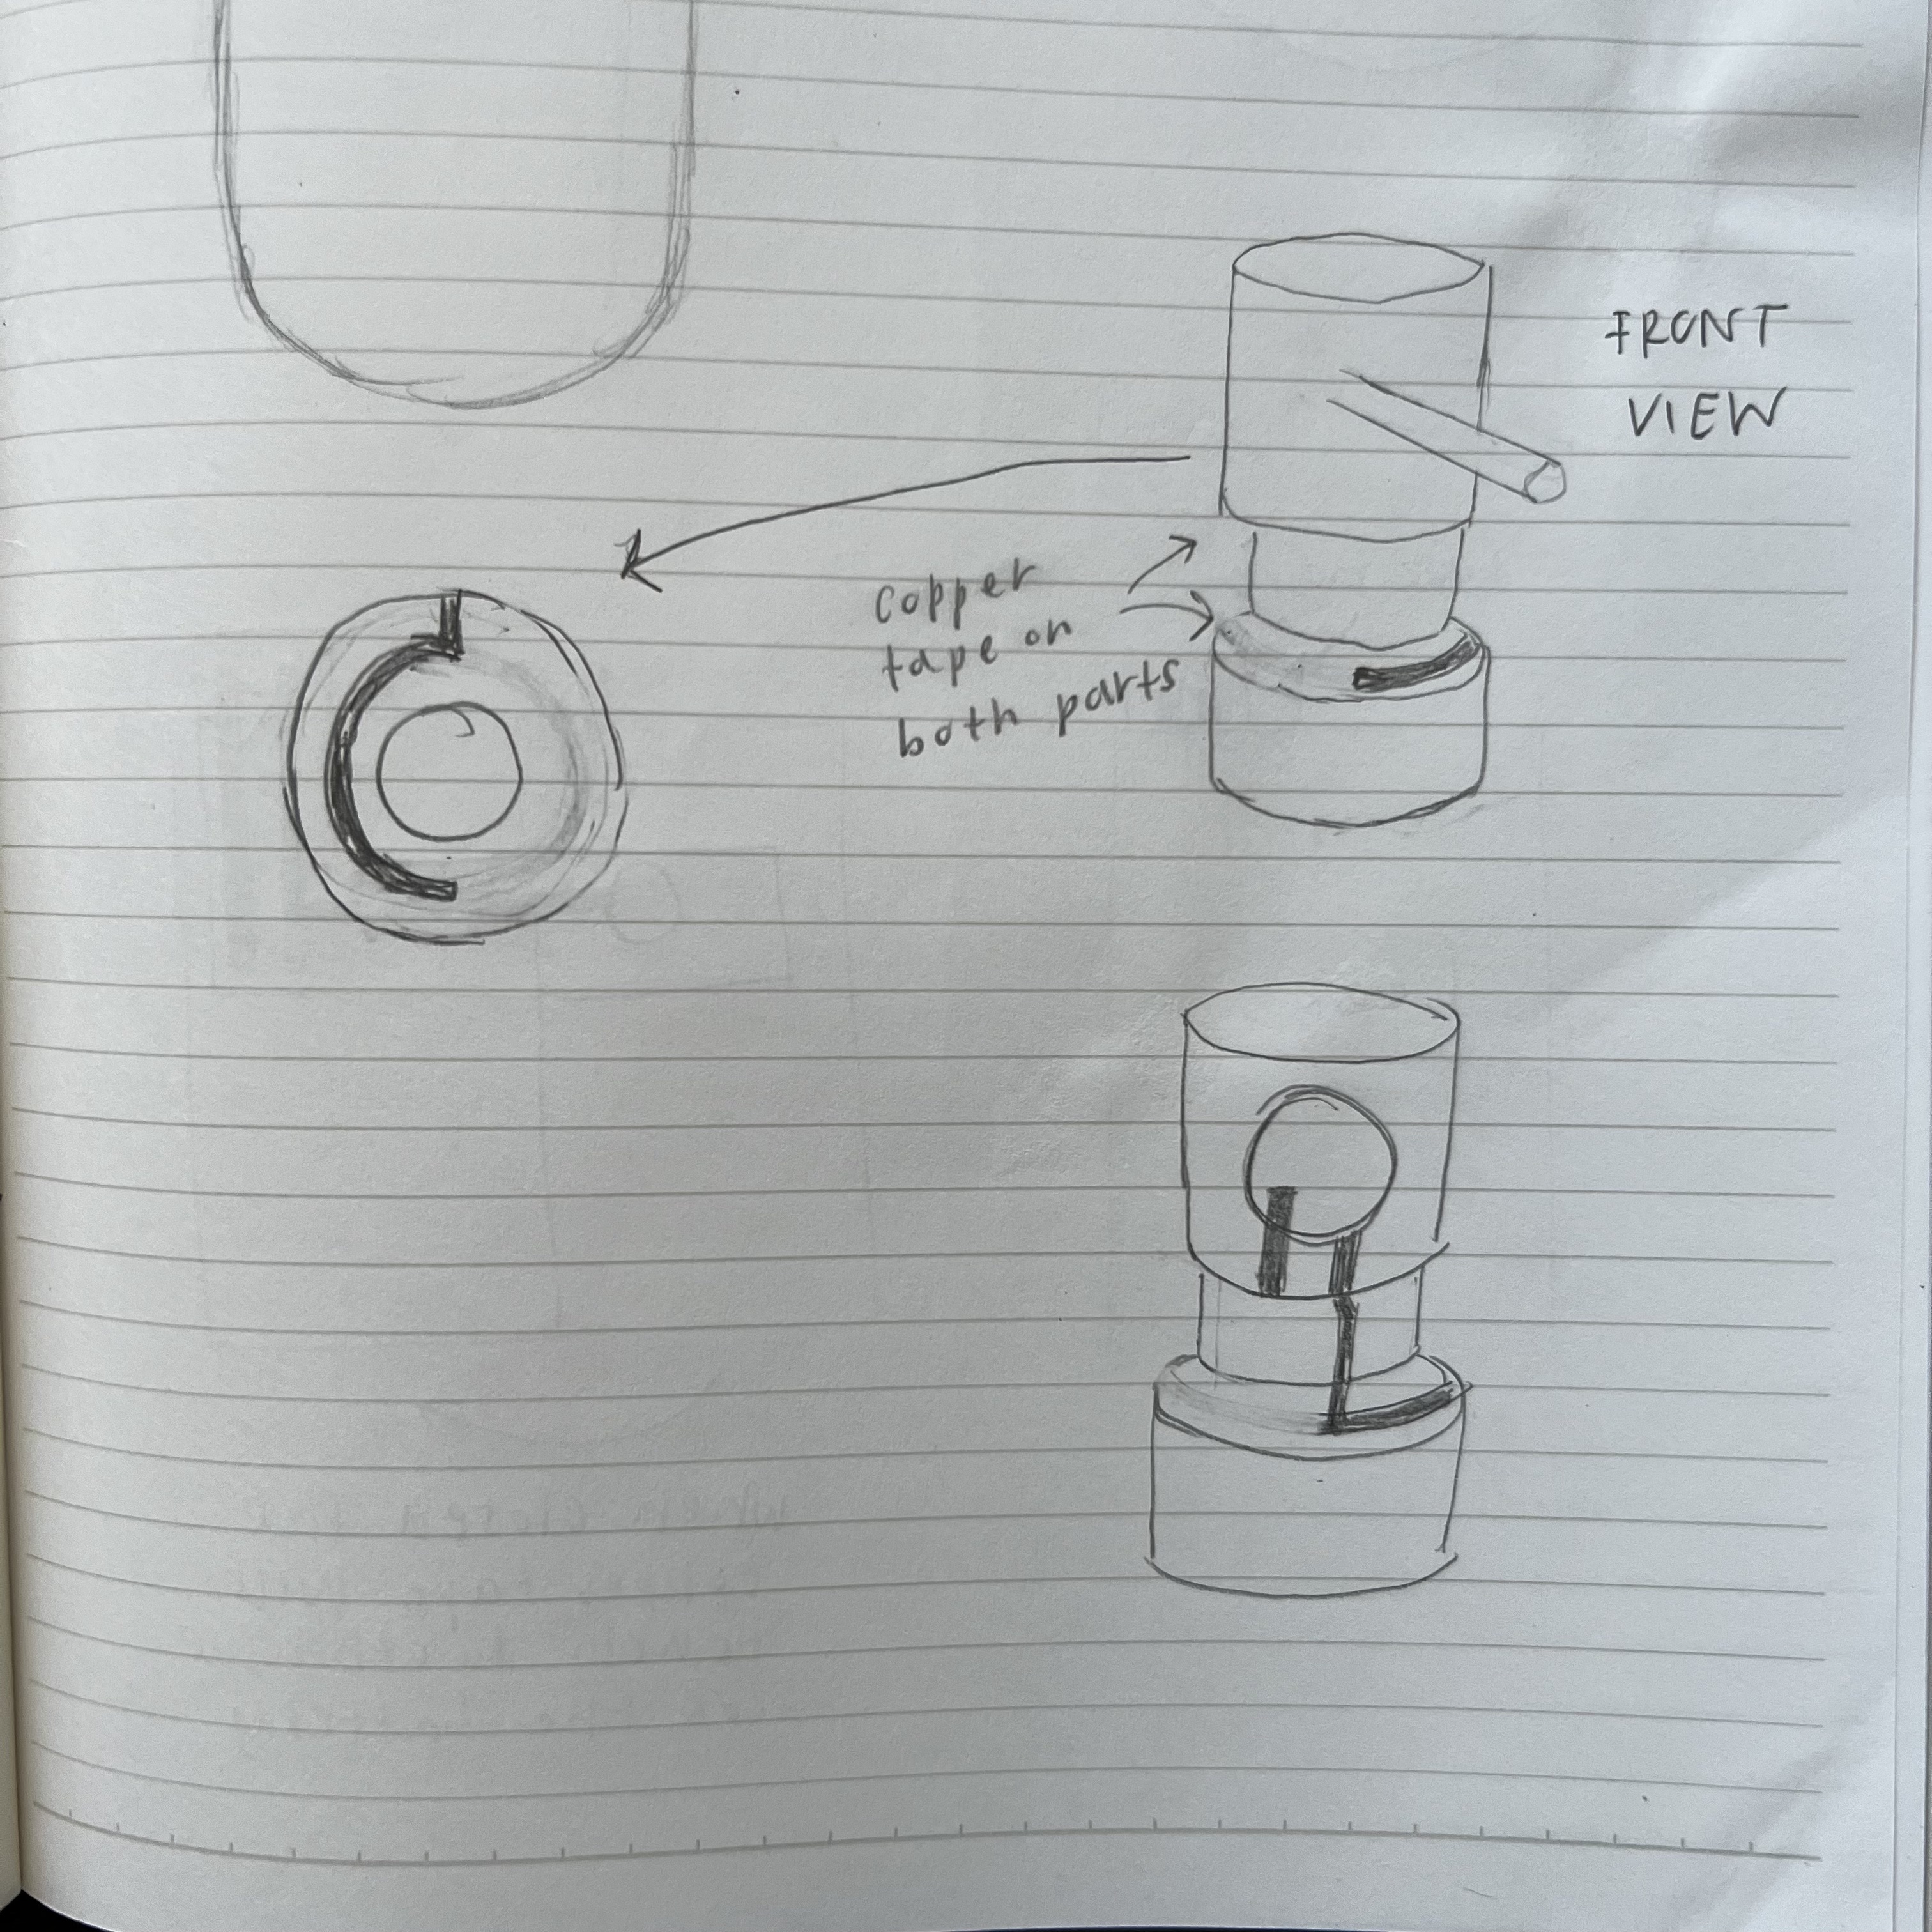 FRONT
VIEW
copper
tape on
both parts